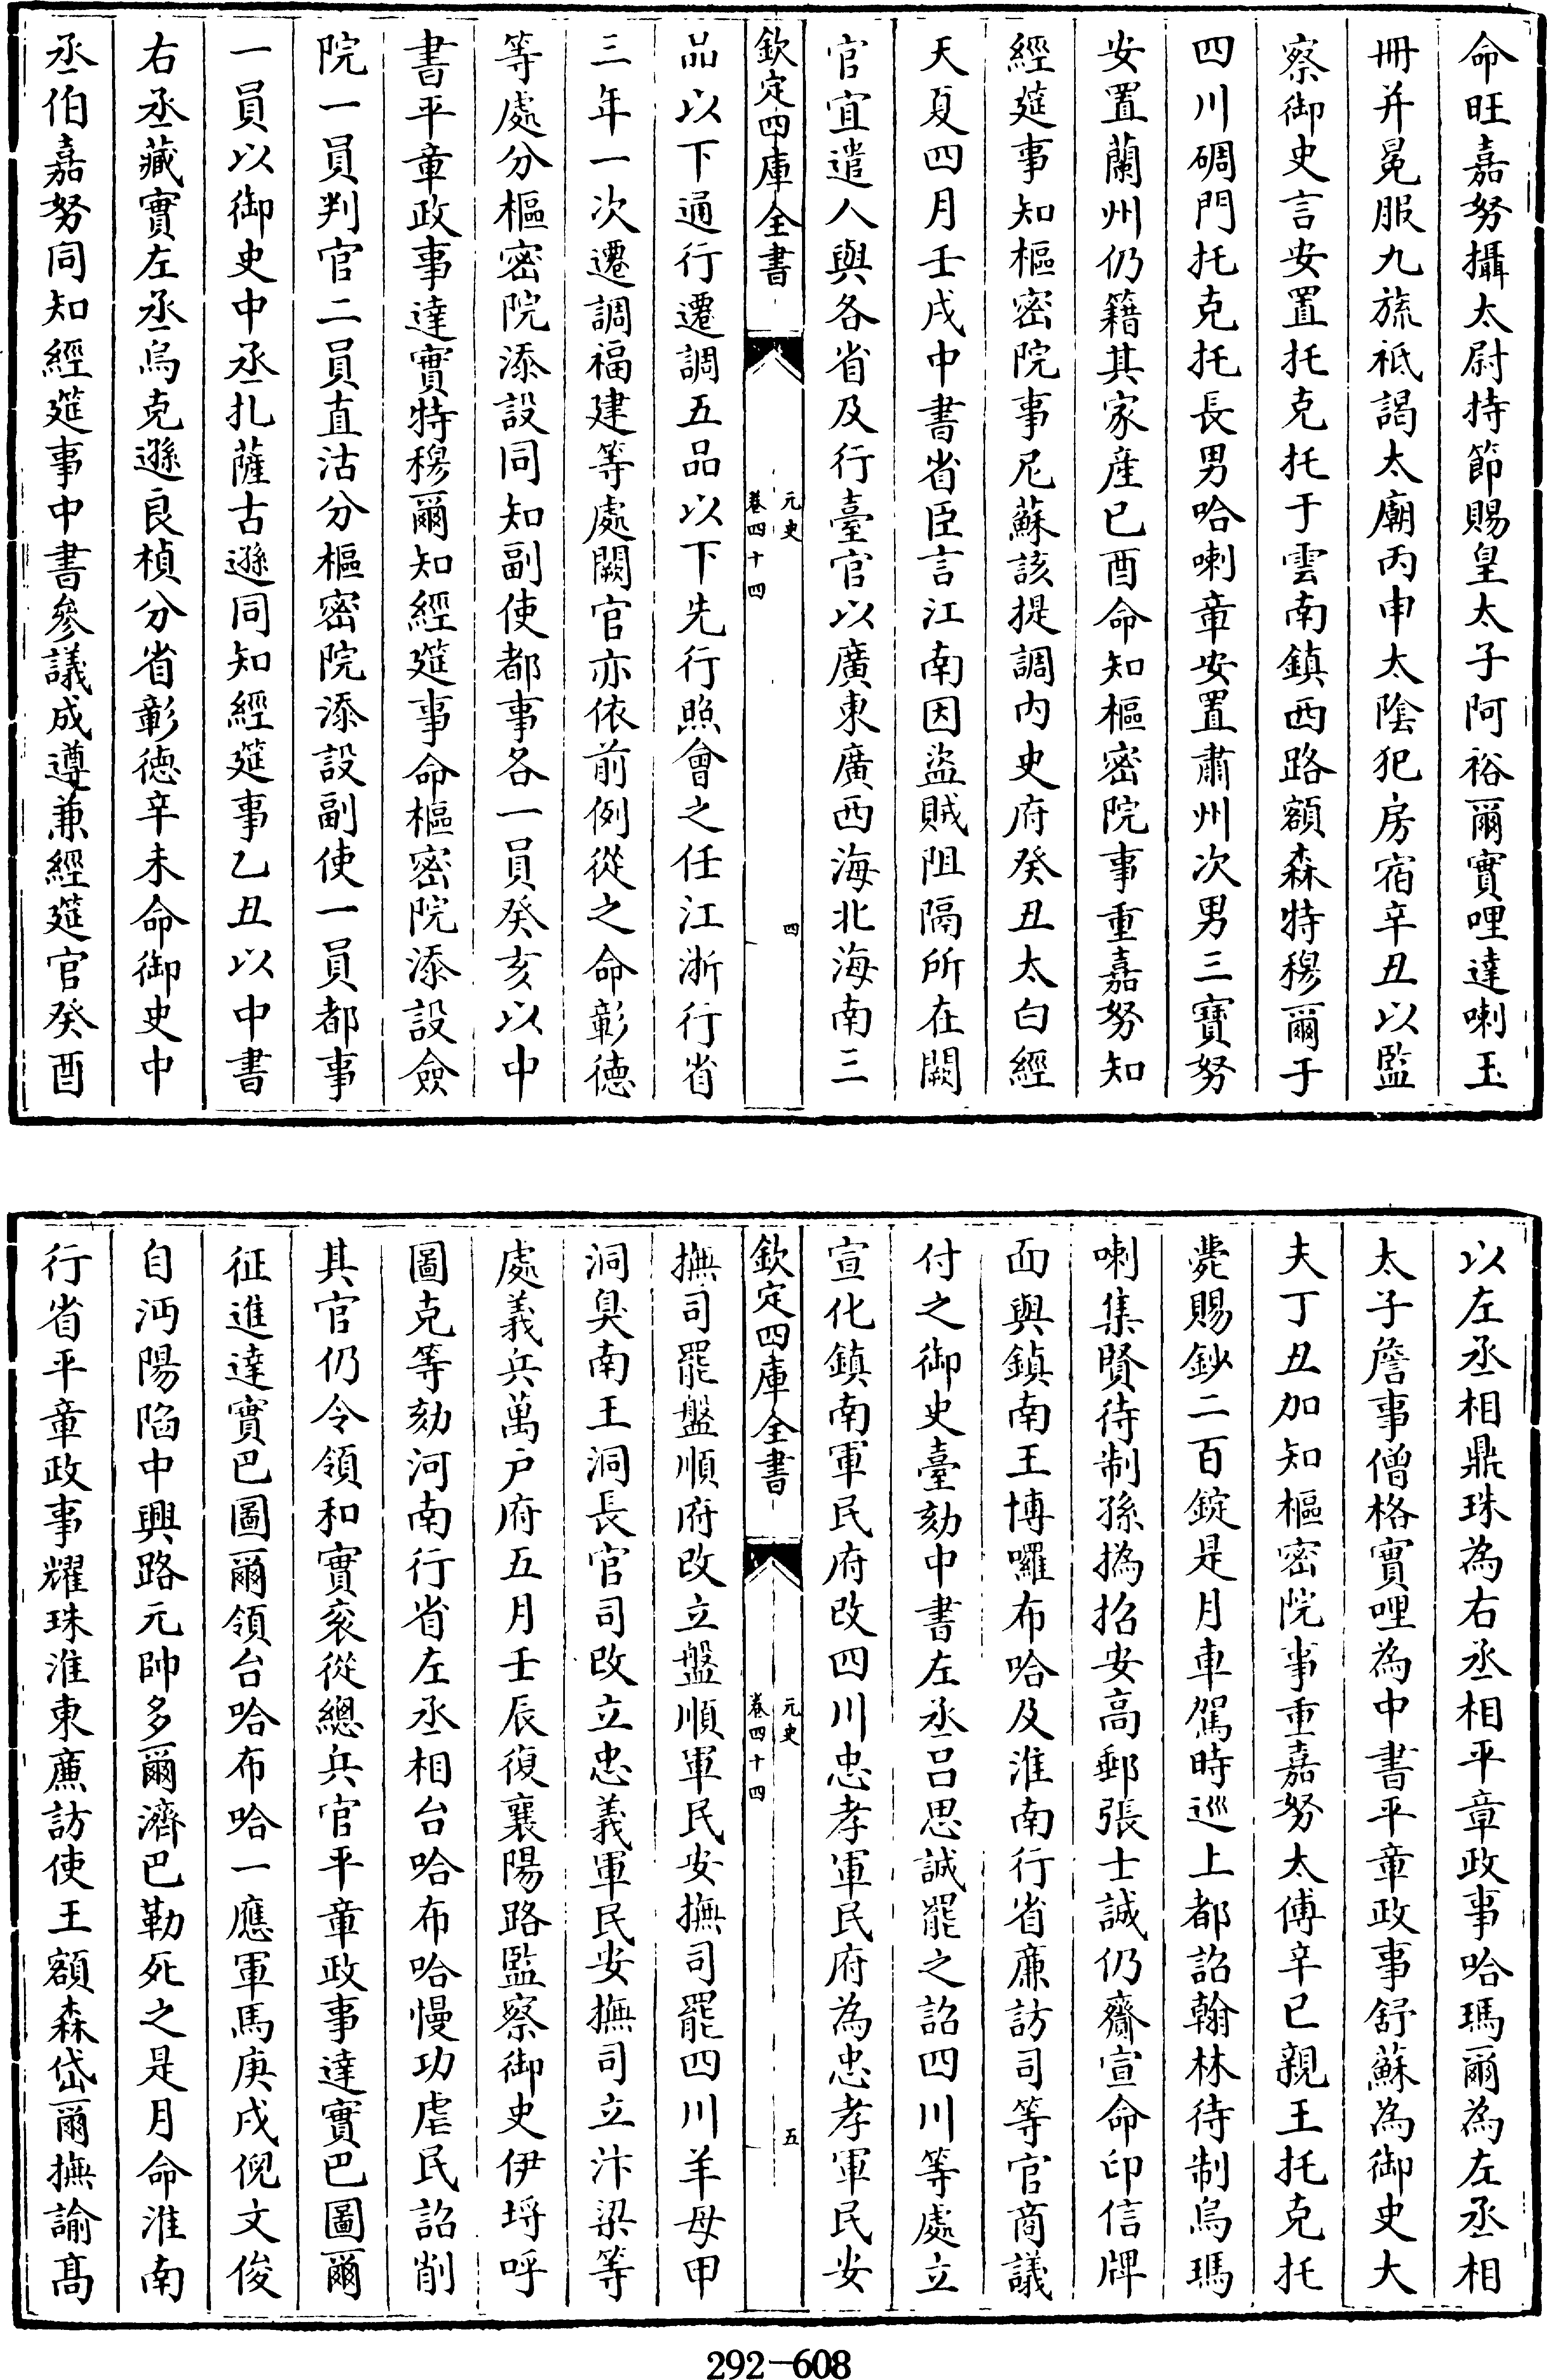 命旺嘉努攝太尉持節賜皇太子阿裕爾實哩達喇玉
冊并冕服九旒祗謁太廟丙申太陰犯房宿辛丑以監
察御史言安置托克托于雲南鎮西路額森特穆爾于
四川碉門托克托長男哈喇章安置肅州次男三寶努
安置蘭州仍籍其家產己酉命知樞密院事重嘉努知
經筵事知樞密院事尼蘇該提調內史府癸丑太白經
天夏四月壬戌中書省臣言江南因盜賊阻隔所在闕
官宜遣人與各省及行臺官以廣東廣西海北海南三
欽定四庫全書
元史
卷四十四
四
品以下通行遷調五品以下先行照會之任江浙行省
三年一次遷調福建等處闕官亦依前例從之命彰徳
等處分樞密院添設同知副使都事各一員癸亥以中
書平章政事達實特穆爾知經筵事命樞密院添設僉
院一員判官二員直沽分樞密院添設副使一員都事
一員以御史中丞扎薩古遜同知經筵事乙丑以中書
右丞藏實左丞烏克遜良楨分省彰徳辛未命御史中
丞伯嘉努同知經筵事中書參議成遵兼經筵官癸酉
以左丞相鼎珠為右丞相平章政事哈瑪爾為左丞相
太子詹事僧格實哩為中書平章政事舒蘇為御史大
夫丁丑加知樞密院事重嘉努太傅辛巳親王托克托
薨賜鈔二百錠是月車駕時巡上都詔翰林待制烏瑪
喇集賢待制孫撝招安高郵張士誠仍齎宣命印信牌
面與鎮南王博囉布哈及淮南行省廉訪司等官商議
付之御史臺劾中書左丞呂思誠罷之詔四川等處立
宣化鎮南軍民府改四川忠孝軍民府為忠孝軍民安
欽定四庫全書
元史
卷四十四
五
撫司罷盤順府改立盤順軍民安撫司罷四川羊母甲
洞臭南王洞長官司改立忠義軍民安撫司立汴梁等
處義兵萬户府五月壬辰復襄陽路監察御史伊埒呼
圖克等劾河南行省左丞相台哈布哈慢功虐民詔削
其官仍令領和實衮從總兵官平章政事達實巴圖爾
征進達實巴圖爾領台哈布哈一應軍馬庚戌倪文俊
自沔陽陷中興路元帥多爾濟巴勒死之是月命淮南
行省平章政事耀珠淮東廉訪使王額森岱爾撫諭髙
292-608